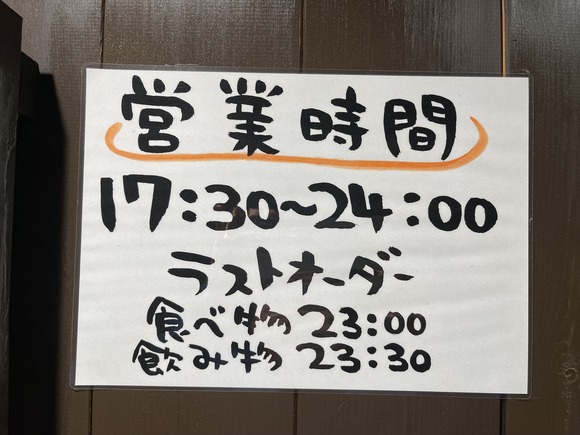 営業時間
17:30~24:00
ラストオーダー
食べ物 23:00
飲み物 23:30